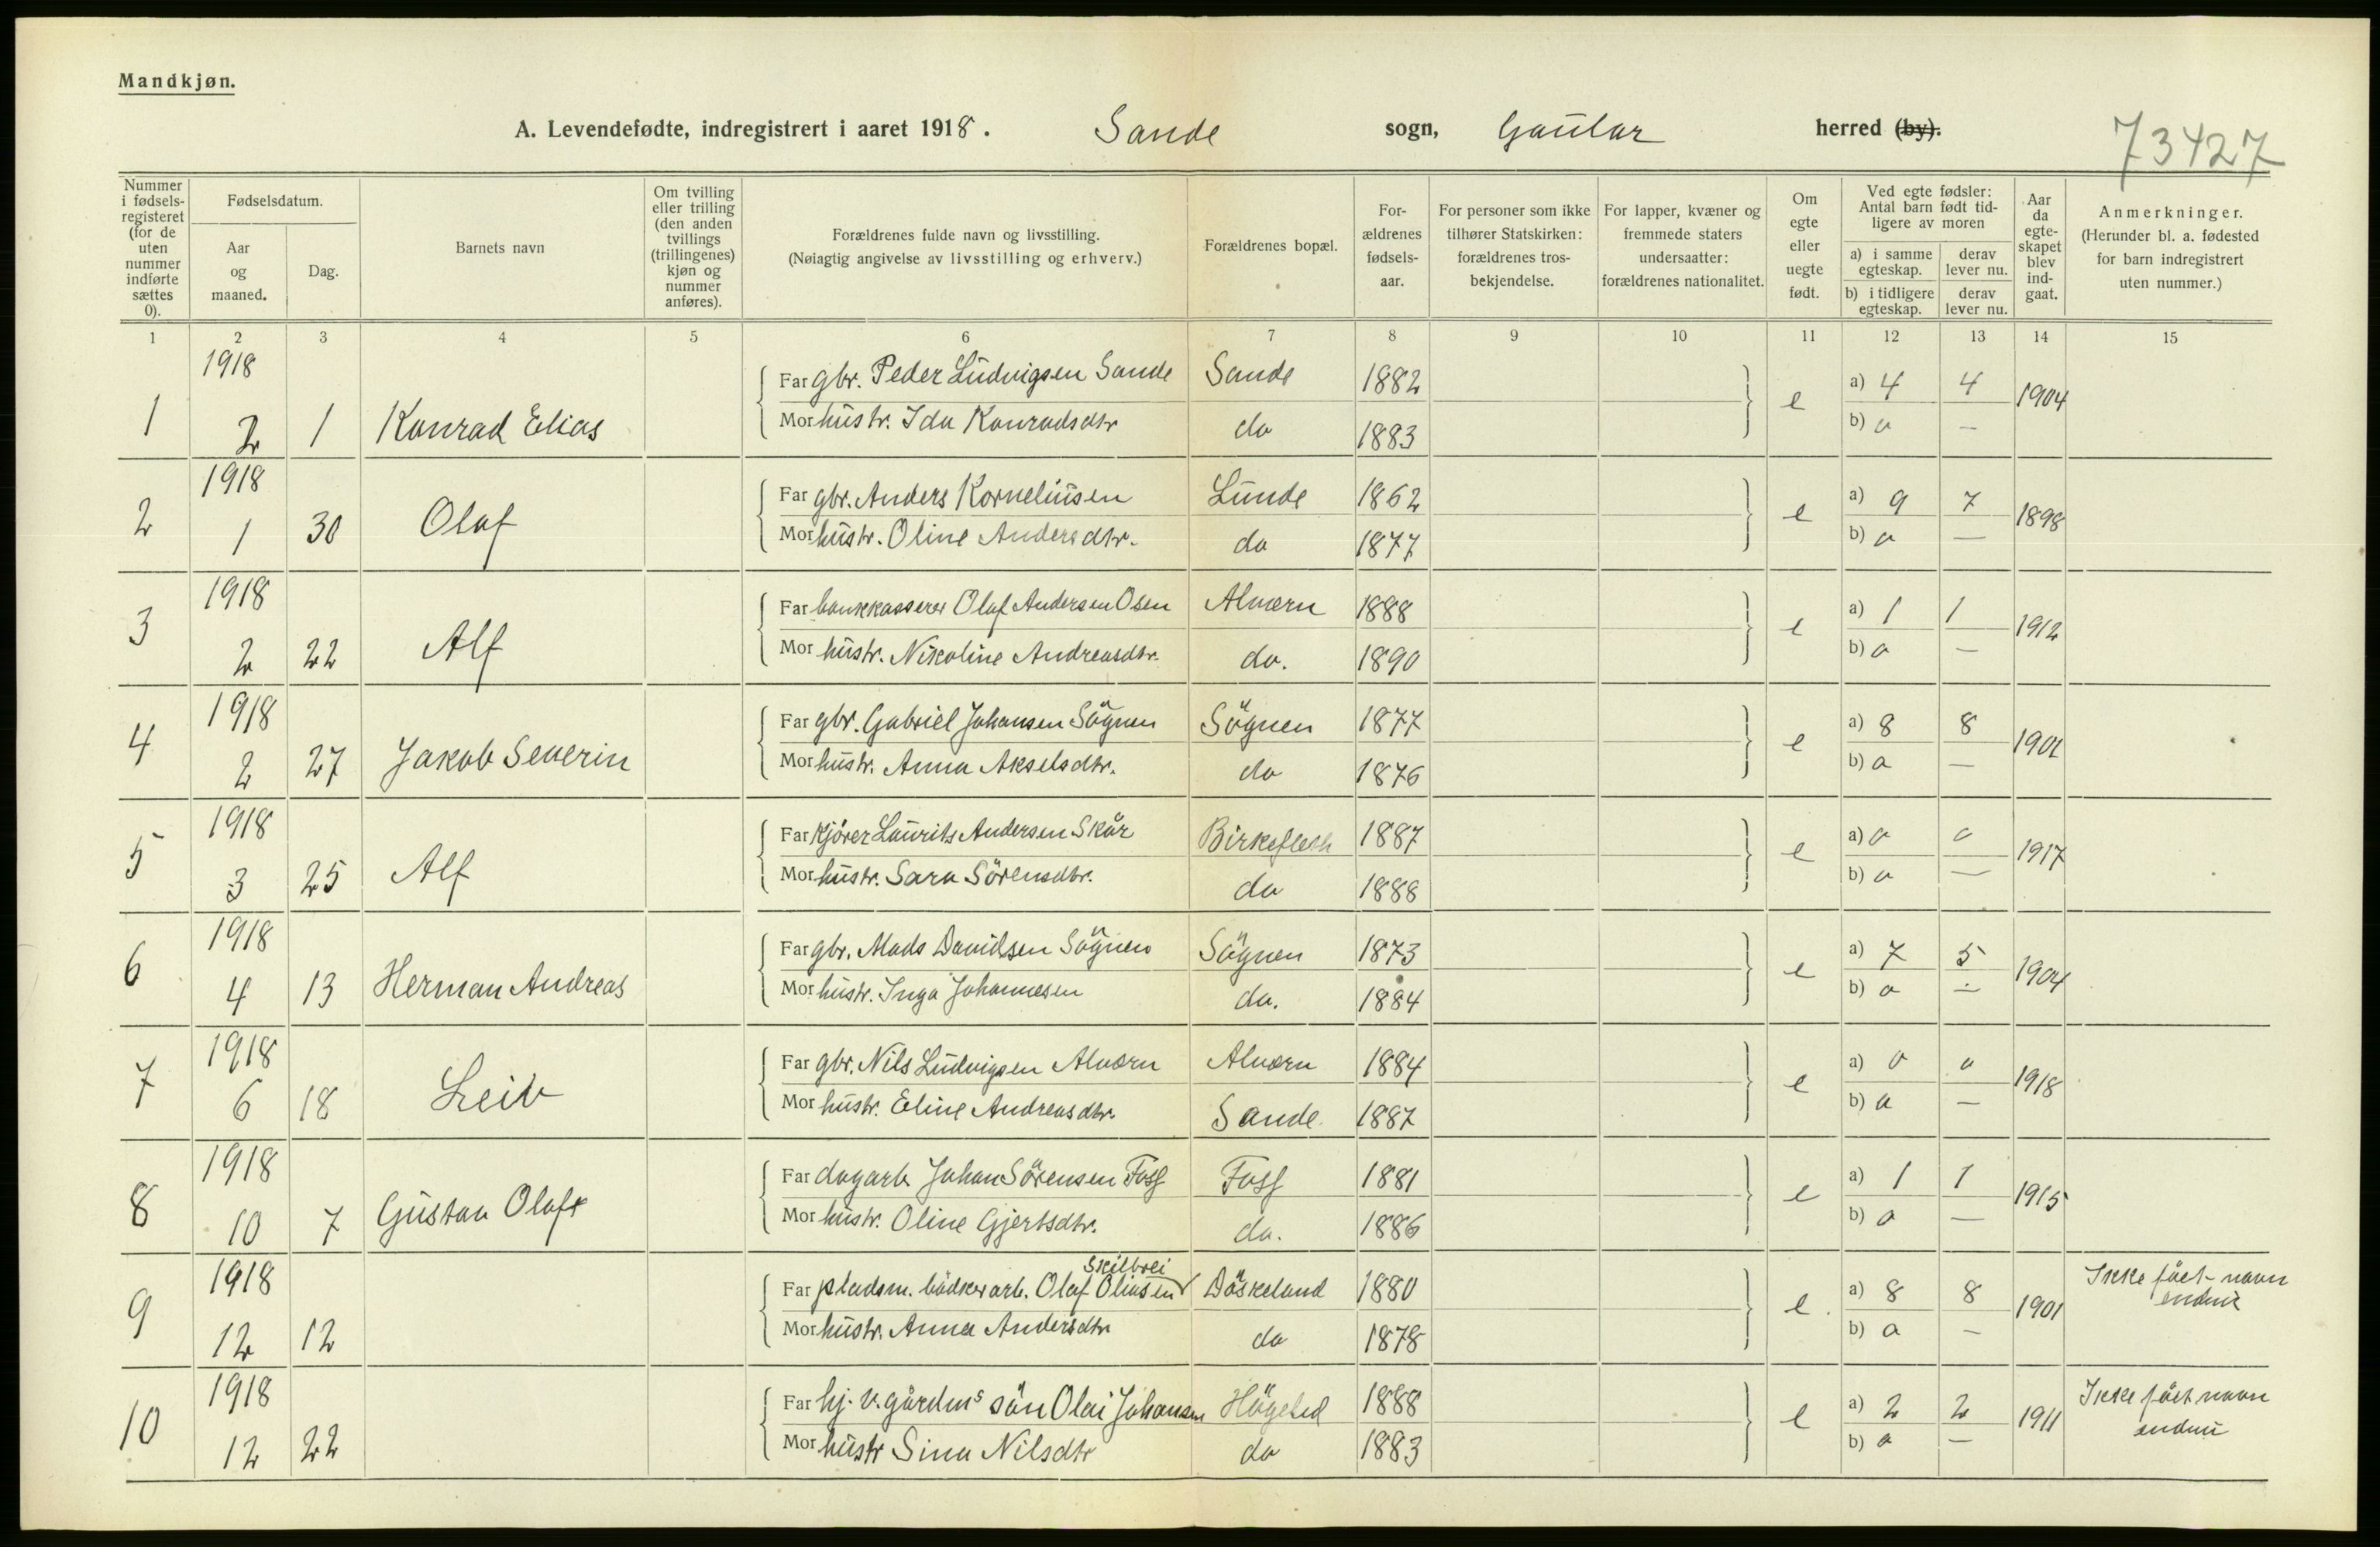 Mandkjøn.
A. Levendefødte, indregistrert i aaret 1918. Sande sogn, Gaular herred (by).
73427
Nummer i fødsels-registeret (for de uten nummer indførte sættes 0).
Fødselsdatum.
Aar og maaned.
Dag.
Barnets navn
Om tvilling eller trilling (den anden tvillings (trillingenes) kjøn og nummer anføres).
Forældrenes fulde navn og livsstilling.
(Nøiagtig angivelse av livsstilling og erhverv.)
Forældrenes bopæl.
For-ældrenes fødsels-aar.
For personer som ikke tilhører Statskirken: forældrenes tros-bekjendelse.
For lapper, kvæner og fremmede staters undersaatter: forældrenes nationalitet.
Om egte eller uegte født.
Ved egte fødsler: Antal barn født tid-ligere av moren
a) i samme egteskap. derav lever nu.
b) i tidligere egteskap. derav lever nu.
Aar da egte-skapet blev ind-gaat.
Anmerkninger.
(Herunder bl. a. fødested for barn indregistrert uten nummer.)
1 2 3 4 5 6 7 8 9 10 11 12 13 14 15
1 1918 2 1 Konrad Elias
Far gbr. Peder Ludvigsen Sande Sande 1882 e a) 4 4 1904
Mor hustr. Ida Konradsdtr do 1883 b) o —
2 1918 1 30 Olaf
Far gbr. Anders Korneliusen Lunde 1862 e a) 9 7 1898
Mor hustr. Oline Andersdtr. do 1877 b) o —
3 1918 2 22 Alf
Far bankkasserer Olaf Andersen Osen Alværn 1888 e a) 1 1 1912
Mor hustr. Nikoline Andreasdtr. do. 1890 b) o —
4 1918 2 27 Jakob Severin
Far gbr. Gabriel Johansen Sögnen Sögnen 1877 e a) 8 8 1901
Mor hustr. Anna Akselsdtr. do 1876 b) o —
5 1918 3 25 Alf
Far kjörer Laurits Andersen Skår 1887 e a) o o 1917
Mor hustr. Sara Sörensdtr. do 1888 b) o —
6 1918 4 13 Herman Andreas
Far gbr. Mads Davidsen Sögnen Sögnen 1873 e a) 7 5 1904
Mor hustr. Inga Johannesen do. 1884 b) o —
7 1918 6 18 Leiv
Far gbr. Nils Ludvigsen Alværn Alværn 1884 e a) o o 1918
Mor hustr. Eline Andreasdtr. Sande 1887 b) o —
8 1918 10 7 Gustav Olaf
Far dagarb Johan Sörensen Foss Foss 1881 e a) 1 1 1915
Mor hustr. Oline Gjertsdtr. do. 1886 b) o —
9 1918 12 12
Skilbrei
Far pladsm. bödkerarb. Olaf Oliusen Döskeland 1880 e. a) 8 8 1901 Ikke fået navn endnu
Mor hustr. Anna Andersdtr do 1878 b) o —
10 1918 12 22
Far hj. v. gårdens sön Olai Johansen 1888 e a) 2 2 1911 Ikke fået navn endnu
Mor hustr Sina Nilsdtr do 1883 b) o —